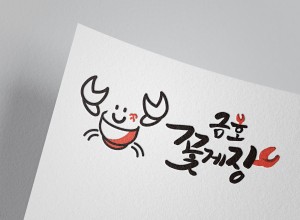 금호
꽃게장